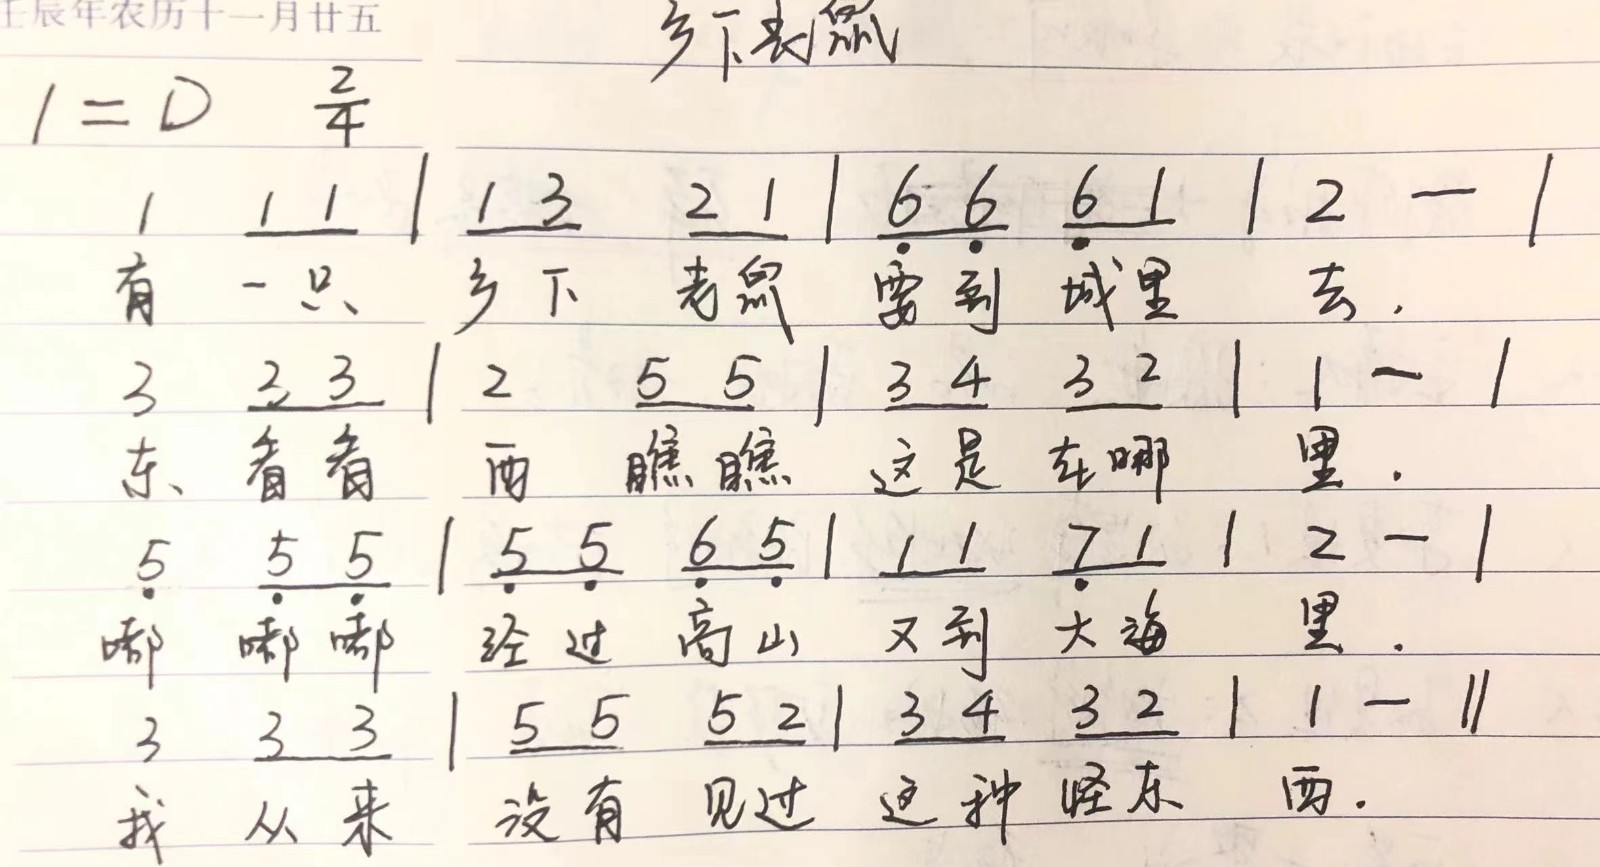 壬辰年农历十一月廿五
乡下老鼠
1=D 2/4
1 1 1 | 1 3 2 1 | 6̣ 6̣ 6̣ 1 | 2 — |
有 一只 乡下 老鼠 要到 城里 去.
3 3 3 | 2 5 5 | 3 4 3 2 | 1 — |
东、看看 西 瞧瞧 这是 在哪 里.
5̣ 5̣ 5̣ | 5̣ 5̣ 6̣ 5̣ | 1 1 7̣ 1 | 2 — |
嘟 嘟嘟 经过 高山 又到 大海 里.
3 3 3 | 5 5 5 2 | 3 4 3 2 | 1 — ‖
我 从来 没有 见过 这种 怪东 西.